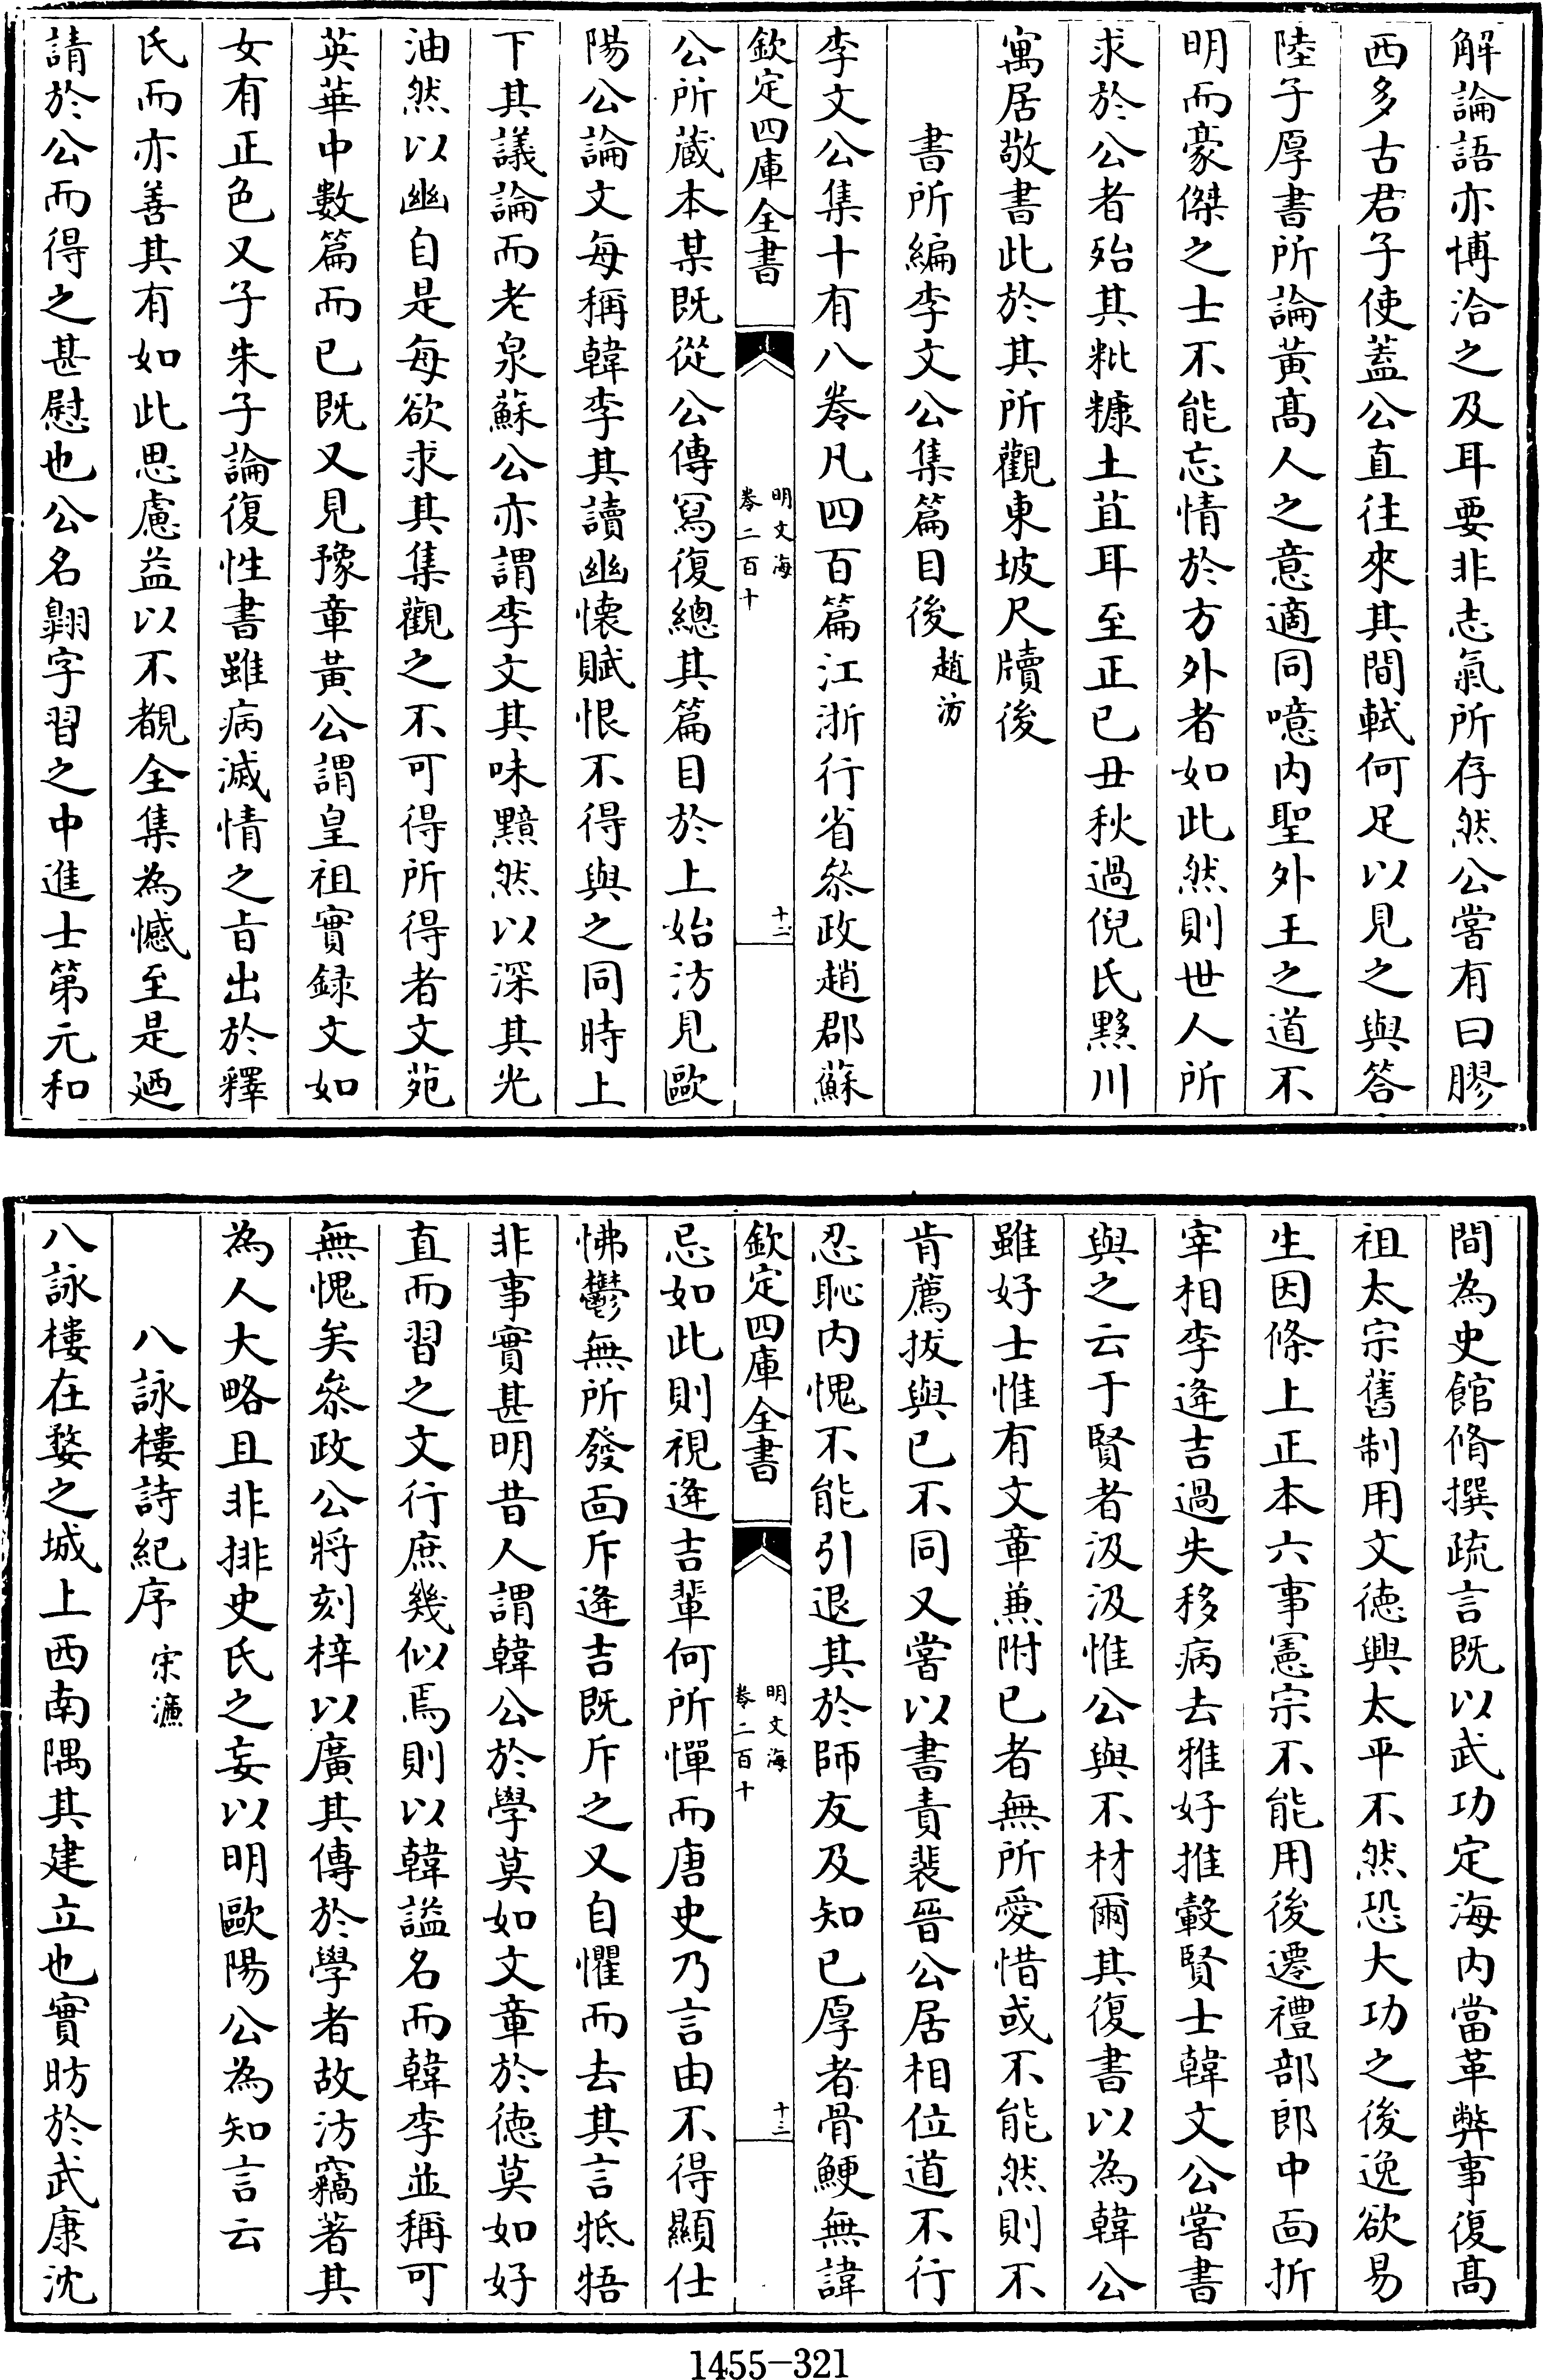 解論語亦博洽之及耳要非志氣所存然公嘗有曰膠
西多古君子使蓋公直往來其間軾何足以見之與答
陸子厚書所論黃髙人之意適同噫内聖外王之道不
明而豪傑之士不能忘情於方外者如此然則世人所
求於公者殆其粃糠土苴耳至正已丑秋過倪氏黟川
寓居敬書此於其所觀東坡尺牘後
書所編李文公集篇目後 趙汸
李文公集十有八卷凡四百篇江浙行省叅政趙郡蘇
欽定四庫全書 明文海 卷二百十 十二
公所蔵本某既從公傳冩復總其篇目於上始汸見歐
陽公論文每稱韓李其讀幽懐賦恨不得與之同時上
下其議論而老泉蘇公亦謂李文其味黯然以深其光
油然以幽自是每欲求其集觀之不可得所得者文苑
英華中數篇而已既又見豫章黃公謂皇祖實録文如
女有正色又子朱子論復性書雖病滅情之㫖出於釋
氏而亦善其有如此思慮益以不覩全集為憾至是廼
請於公而得之甚慰也公名翺字習之中進士第元和
間為史館脩撰疏言既以武功定海内當革弊事復髙
祖太宗舊制用文徳興太平不然恐大功之後逸欲易
生因條上正本六事憲宗不能用後遷禮部郎中面折
宰相李逄吉過失移病去雅好推轂賢士韓文公嘗書
與之云于賢者汲汲惟公與不材爾其復書以為韓公
雖好士惟有文章兼附已者無所愛惜或不能然則不
肯薦拔與已不同又嘗以書責裴晉公居相位道不行
忍恥内愧不能引退其於師友及知已厚者骨鯁無諱
欽定四庫全書 明文海 卷二百十 十三
忌如此則視逄吉輩何所憚而唐史乃言由不得顯仕
怫鬱無所發面斥逄吉既斥之又自懼而去其言牴牾
非事實甚明昔人謂韓公於學莫如文章於德莫如好
直而習之文行庶幾似焉則以韓諡名而韓李並稱可
無愧矣叅政公將刻梓以廣其傳於學者故汸竊著其
為人大略且非排史氏之妄以明歐陽公為知言云
八詠樓詩紀序 宋濂
八詠樓在婺之城上西南隅其建立也實昉於武康沈
1455-321